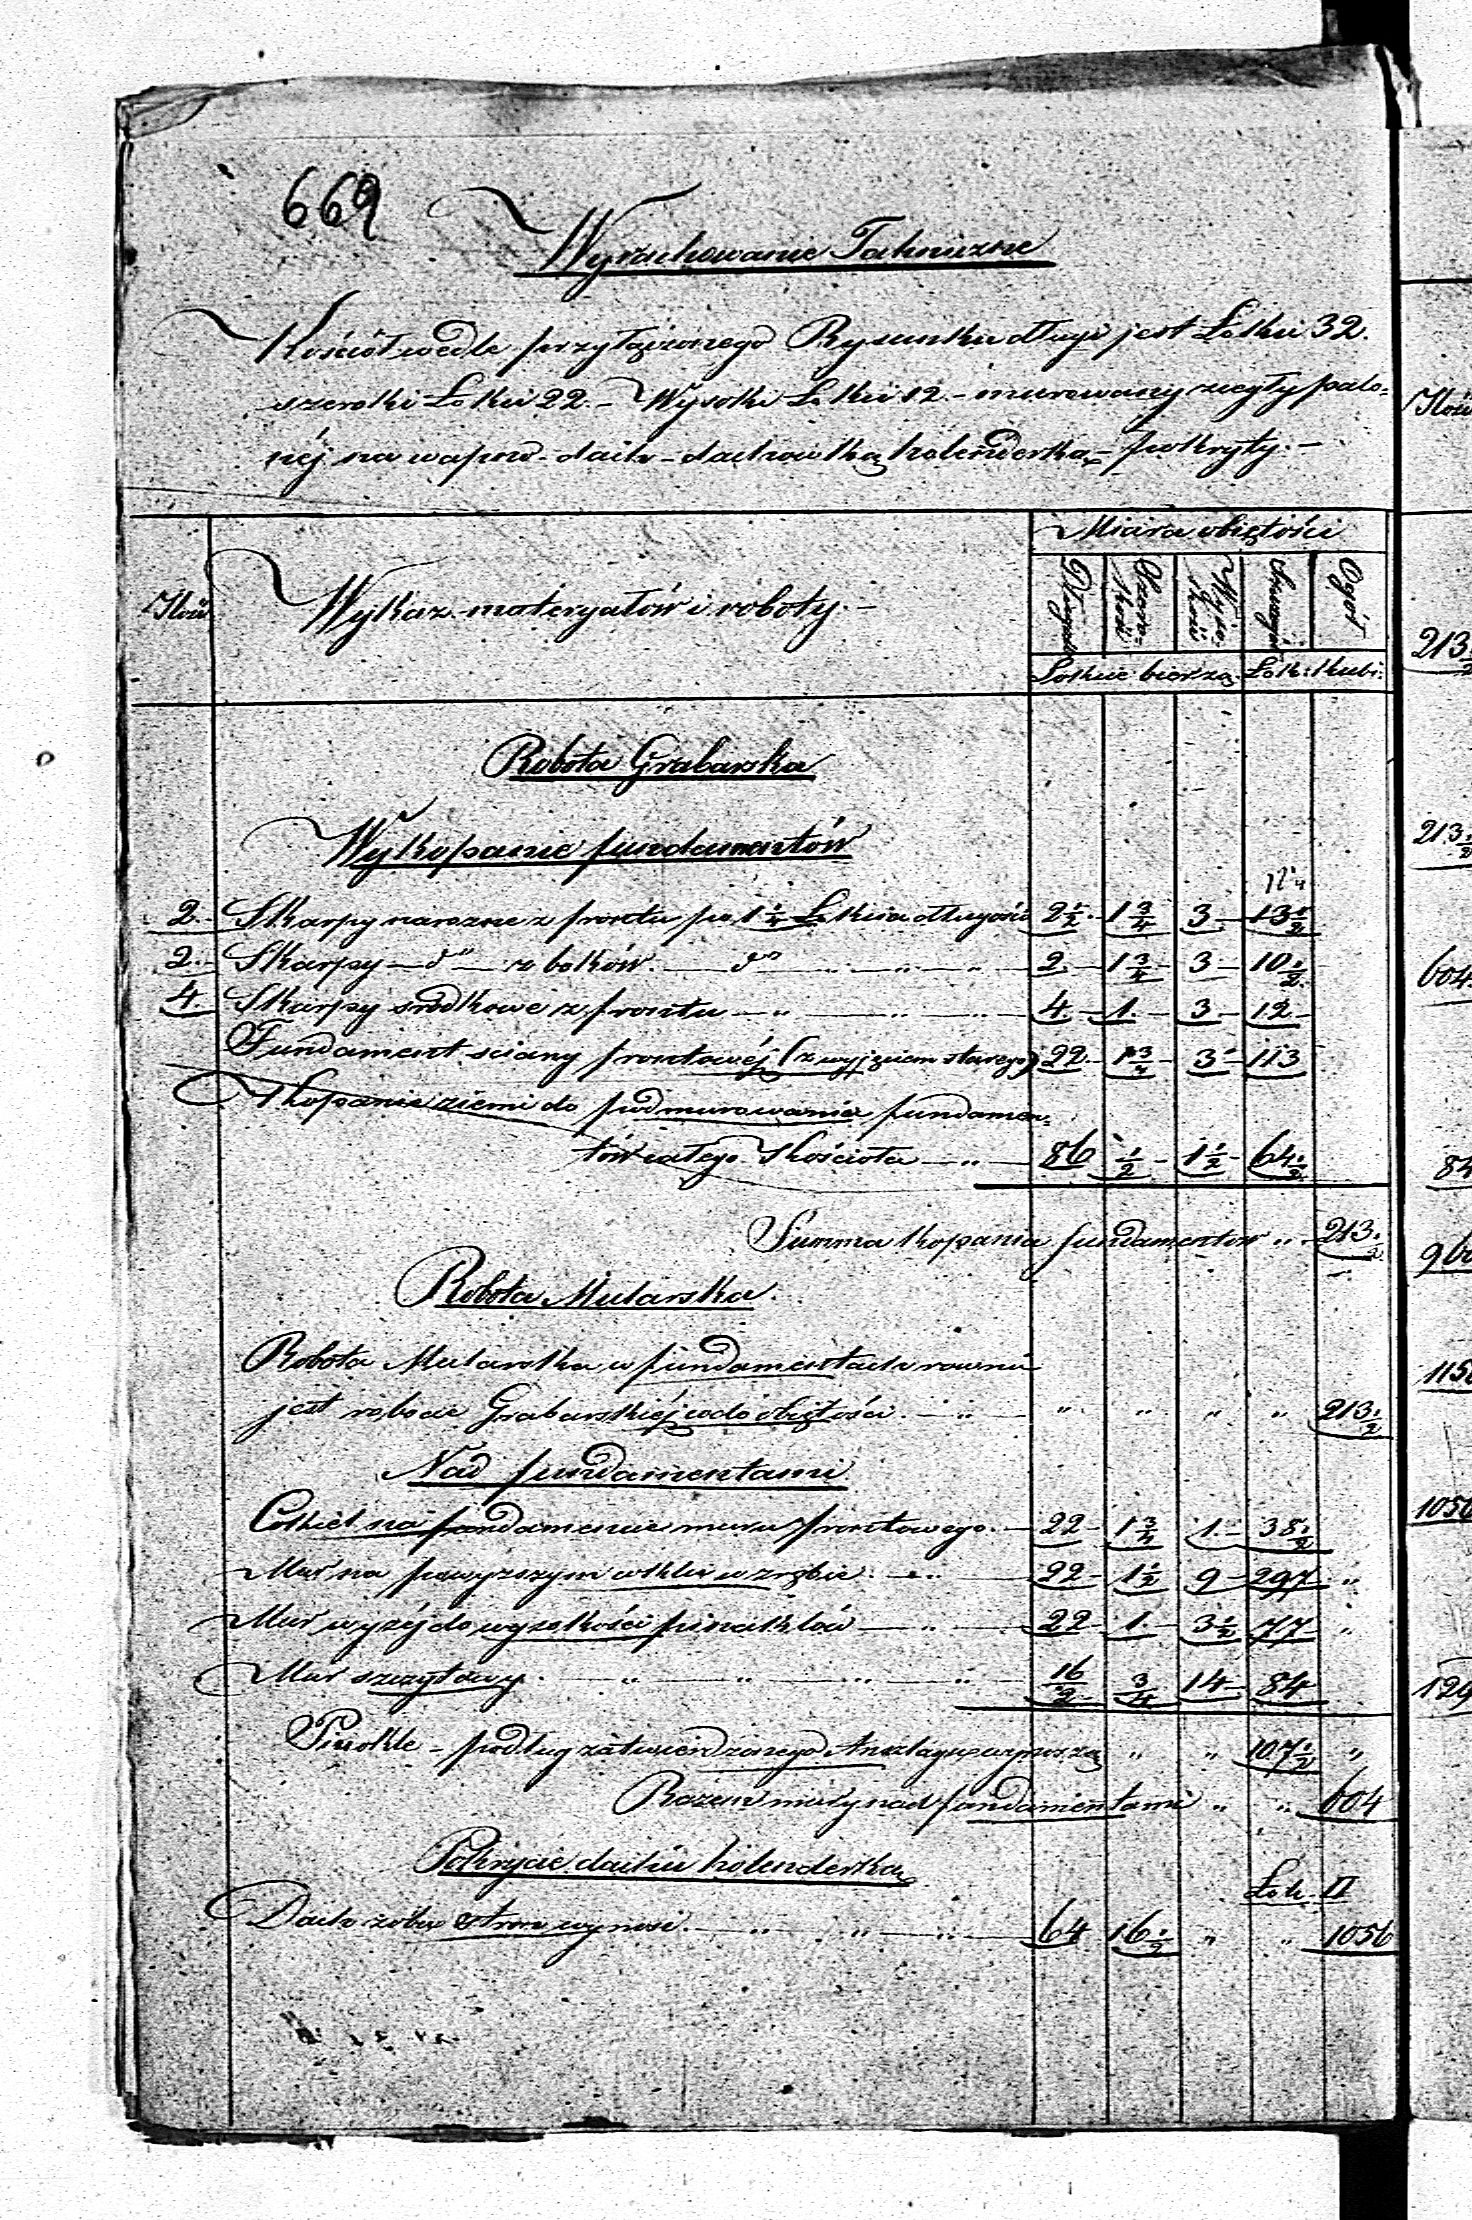 669
Wyrachowanie Techniczne
Kościół wedle przyłączonego Rysunku długi jest Łokci 32.
szeroki Łokci 22. – Wysoki Łokci 12. – murowany z cegły palo-
néj na wapno – dach – dachówką holenderką – pokryty. –
Miara objętości
Ilość
Wykaz materyałów i roboty. –
Długość
Szero-
kość
Wyso-
kość
Ogół
Łokcie bierzą. Łok: kubi:
Robota Grabarska
Wykopanie fundamentów
2. Skarpy narożne z frontu po 1 1/4 Łokcia długości 2 1/2 – 1 3/4 3 – 13 1/2
2. – Skarpy – d° – z boków. – d° „ „ „ 2. – 1 3/4 – 3 – 10 1/2
4. Skarpy srodkowe z frontu – „ „ „ 4. – 1. – 3 – 12 –
Fundament sciany frontowéj (z wyjęciem starego) 22 – 1 3/4 – 3 – 113
Kopanie ziemi do podmurowania fundamen-
tów całego Kościoła – „ – 86 1/2 – 1 1/2 – 64 1/2
Summa kopania fundamentow „ 213 1/2
Robota Mularska.
Robota Mularska w fundamentach rowna
jest robocie Grabarskiéj co do objętości. – „ – „ „ „ „ 213 1/2
Nad fundamentami
Cokiel na fundamencie muru frontowego. – 22 – 1 3/4 1. – 38 1/2
Mur na powyzszym coklu w zrębie. – „ – 22 – 1 1/2 9 – 297 – „
Mur wyzéj do wysokości pinaklów – „ – 22 – 1. – 3 1/2 77 – „
Mur szczytowy. – „ – „ – „ – „ 16/2 – 3/4 14 – 84
Pinakle – podług zatwierdzonego Anszlagu wynoszą „ „ 107 1/2 „
Razem mury nad fundamentami „ „ 604
Pokrycie dachu holenderką
Łok. □
Dach z obu stron wynosi. – „ – „ – „ – 64 16 1/2 „ „ 1056